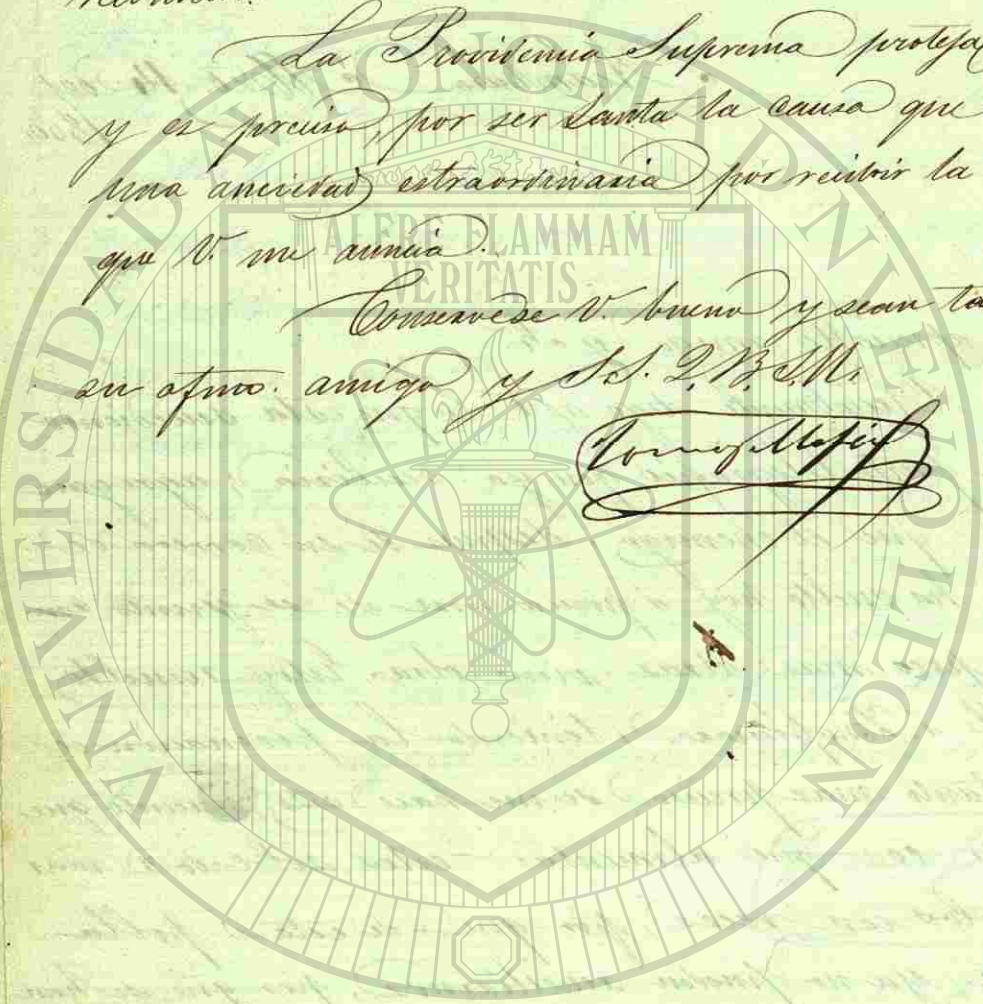 La Providencia Suprema proteja
y es preciso, por ser Santa la causa que
una anciedad estraordinaria por recibir la
que V. me anuncia.
Conservese V. bueno y sean
su afmo. amigo y S.S. Q.B.S.M.
UNIVERSIDAD AUTONOMA DE NUEVO LEON
ALERE FLAMMAM
VERITATIS